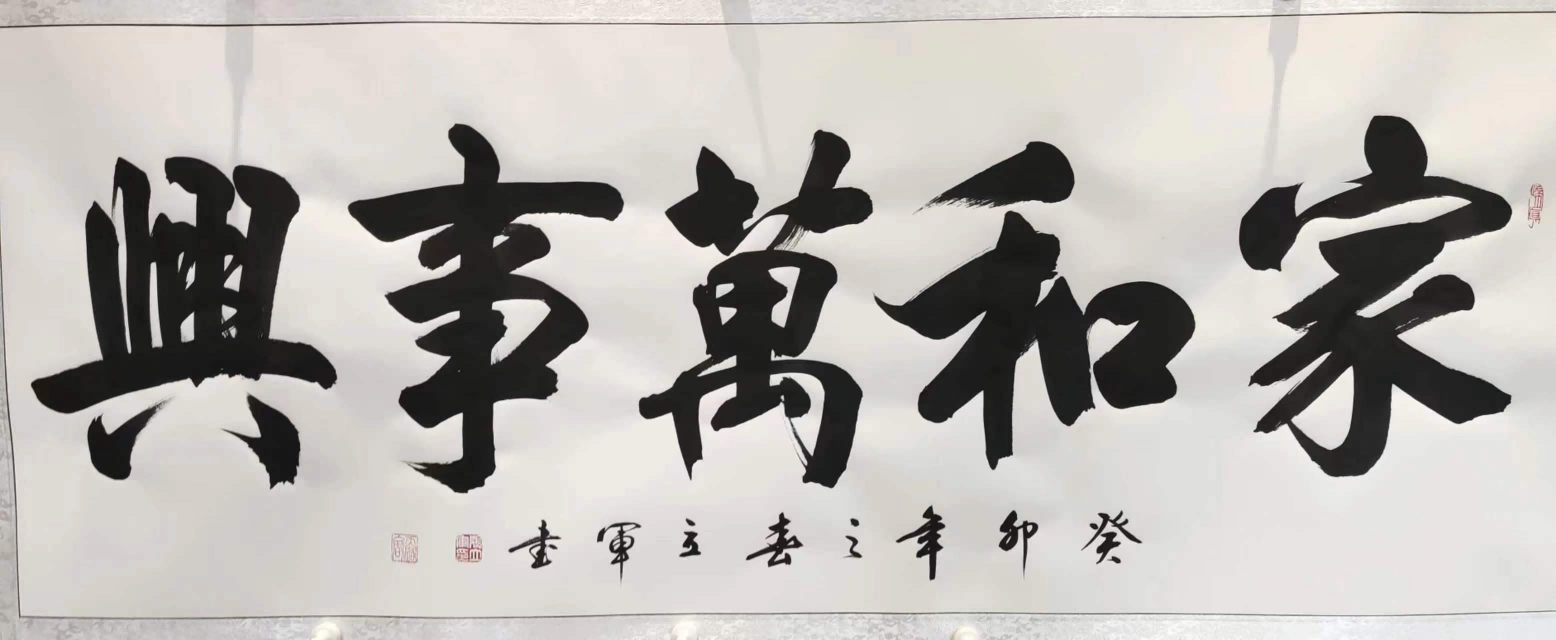 家和萬事興
癸卯年之春立軍書